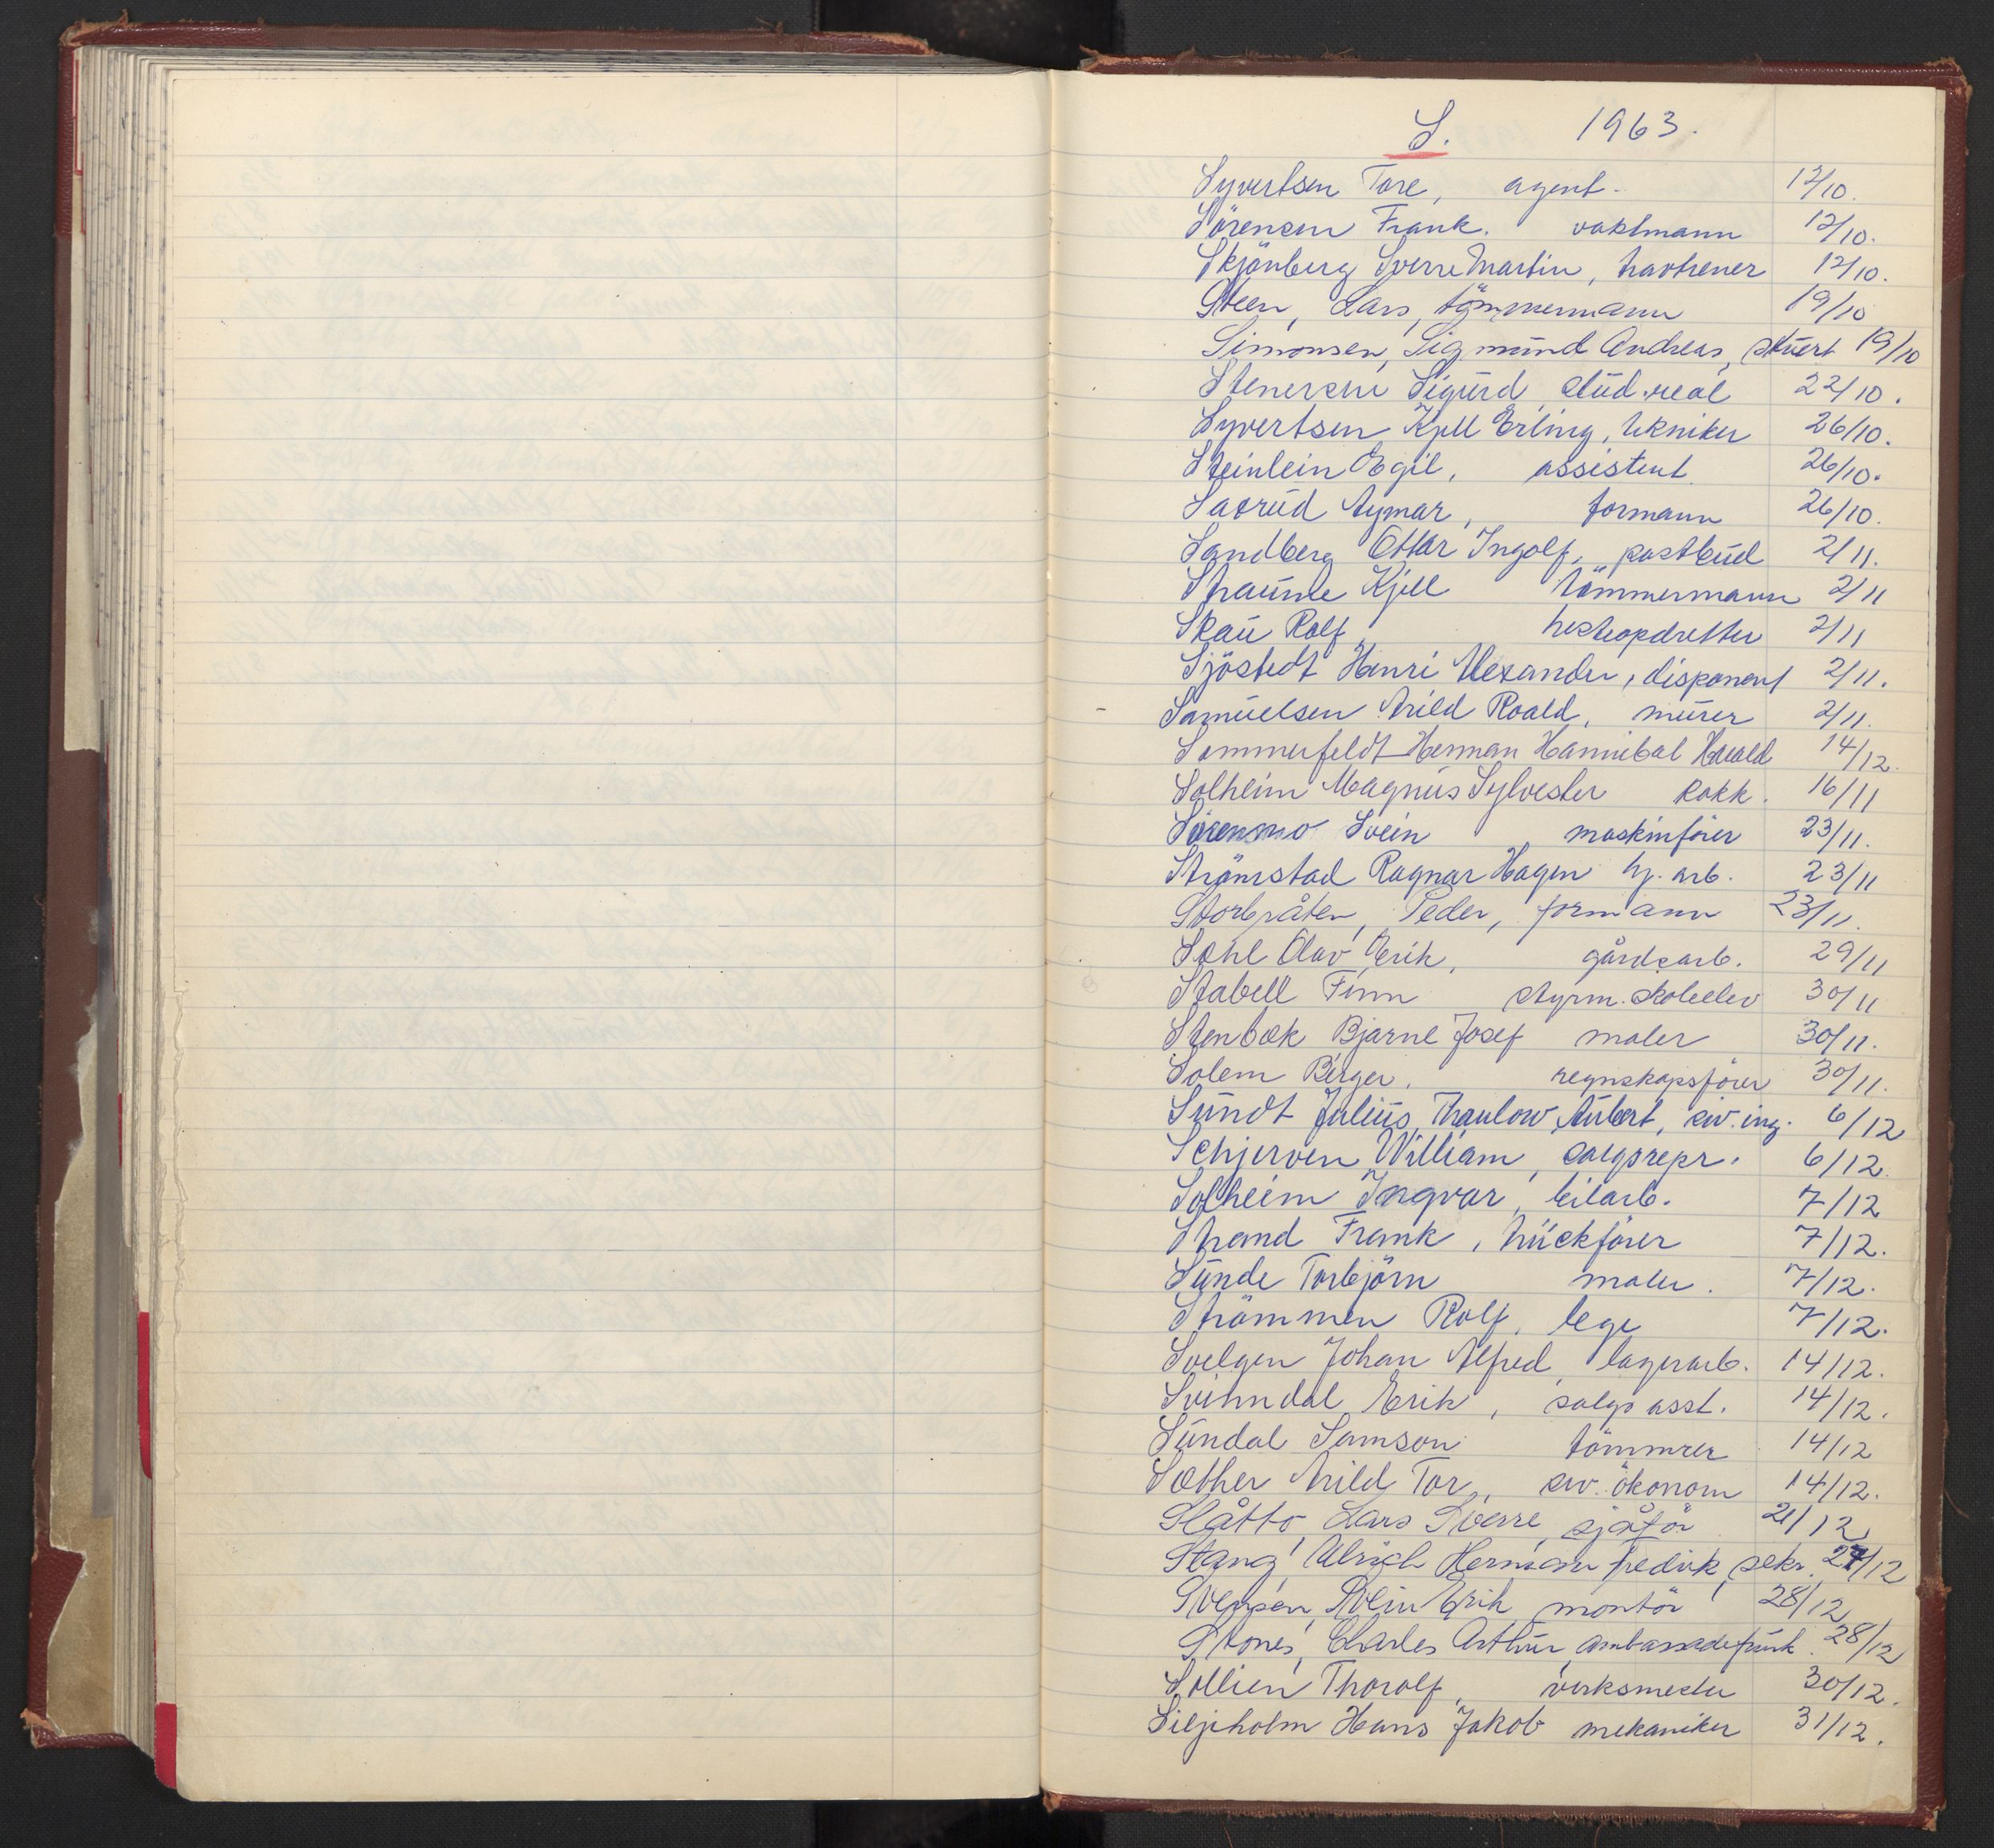 S. 1963.
Syvertsen Tore, agent. 12/10.
Sörensen Frank. vaktmann 12/10.
Skjönberg Sverre Martin, travtrener 12/10.
Steen, Lars, tömmermann 19/10
Simonsen, Sigmund Andreas, stuert 19/10
Stenersen Sigurd, stud. real 22/10.
Syvertsen Kjell Erling, tekniker 26/10.
Steinlein Egil, assistent. 26/10.
Sacrud Aymar, formann 26/10.
Sandberg Ottar Ingolf, postbud 2/11.
Straumle Kjell tömmermann 2/11
Skau Rolf, hesteopdretter 2/11
Sjöstedt Henri Alexander, disponent 2/11.
Samuelsen Arild Roald, murer 2/11.
Sommerfeldt Herman Hannibal Harald 14/12.
Solheim Magnus Sylvester kokk. 16/11
Sörensmo Svein maskinförer 23/11.
Strömstad Ragnar Hagen hj. arb. 23/11
Storbråten, Peder, formann 23/11.
Sohl Olav Erik, gårdsarb. 29/11
Stabell Finn styrm. skoleelev 30/11
Stenbæk Bjarne Josef maler 30/11.
Solem Birger, regnskapsförer 30/11.
Sundt Julius Thaulow Aubert, siv. ing. 6/12
Schjerven William, salgsrepr. 6/12.
Solheim Ingvar, bilarb. 7/12
Strand Frank, truckförer 7/12.
Sunde Torbjörn maler. 7/12.
Strömmen Rolf, lege 7/12.
Svelgen Johan Alfred, lagerarb. 14/12.
Svinndal Erik, salgs asst. 14/12.
Sundal Samson tömmrer 14/12
Sæther Arild Tor, siv. ökonom 14/12.
Slåtto, Lars Sverre, sjåför 21/12
Stang, Ulrich Herman fredrik, sekr. 27/12
Svensen, Svein Erik, montör 28/12
Stones, Charles Arthur, ambassadefunk. 28/12
Sollien Thorolf, verksmester 30/12.
Siljeholm Hans Jakob mekaniker 31/12.